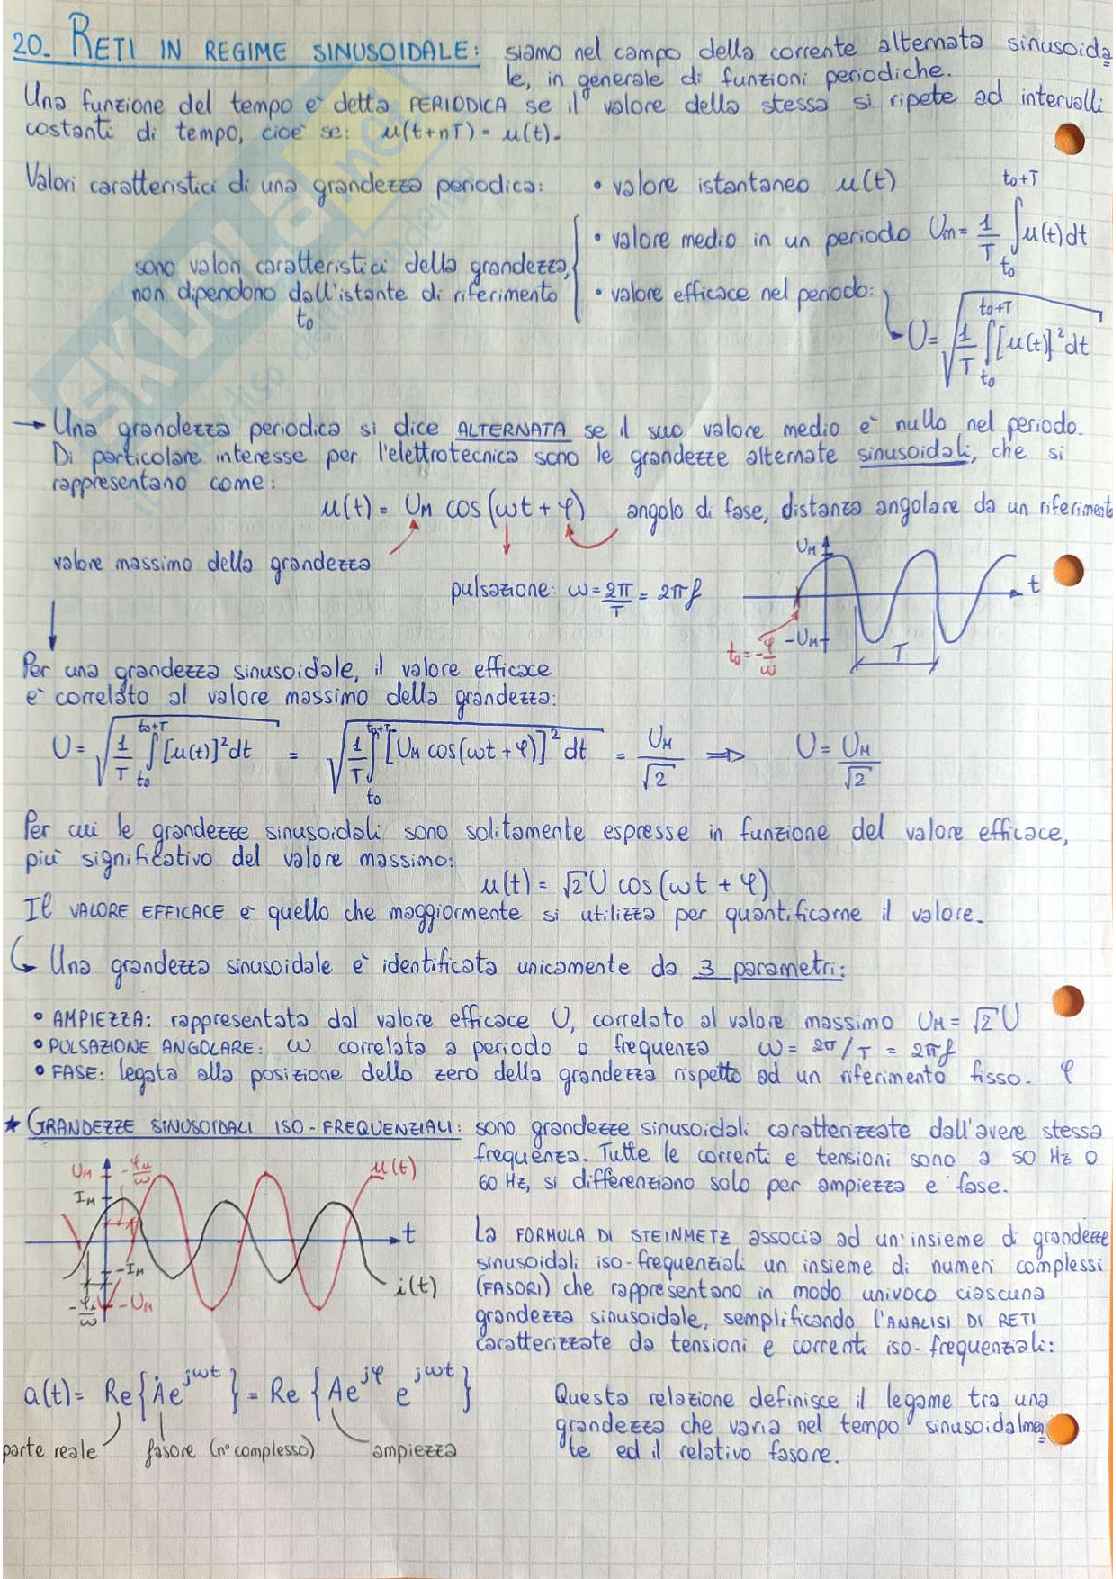 20. RETI IN REGIME SINUSOIDALE: siamo nel campo della corrente alternata sinusoida
le, in generale di funzioni periodiche.
Una funzione del tempo è detta PERIODICA se il valore della stessa si ripete ad intervalli
costanti di tempo, cioè se: u(t+nT) = u(t).
Valori caratteristici di una grandezza periodica: • valore istantaneo u(t)
sono valori caratteristici della grandezza,
non dipendono dall'istante di riferimento
t₀
• valore medio in un periodo Um = 1/T ∫_{t₀}^{t₀+T} u(t)dt
• valore efficace nel periodo:
U = √(1/T ∫_{t₀}^{t₀+T} [u(t)]² dt)
→ Una grandezza periodica si dice ALTERNATA se il suo valore medio è nullo nel periodo.
Di particolare interesse per l'elettrotecnica sono le grandezze alternate sinusoidali, che si
rappresentano come:
u(t) = U_M cos(ωt + φ) angolo di fase, distanza angolare da un riferiment
valore massimo della grandezza
pulsazione: ω = 2π/T = 2πf
U_M
t
-U_M
t₀ = -φ/ω
T
Per una grandezza sinusoidale, il valore efficace
è correlato al valore massimo della grandezza:
U = √(1/T ∫_{t₀}^{t₀+T} [u(t)]² dt) = √(1/T ∫_{t₀}^{t₀+T} [U_M cos(ωt + φ)]² dt) = U_M/√2 ⇒ U = U_M/√2
Per cui le grandezze sinusoidali sono solitamente espresse in funzione del valore efficace,
più significativo del valore massimo:
u(t) = √2 U cos(ωt + φ)
Il VALORE EFFICACE è quello che maggiormente si utilizza per quantificarne il valore.
↳ Una grandezza sinusoidale è identificata unicamente da 3 parametri:
• AMPIEZZA: rappresentata dal valore efficace U, correlato al valore massimo U_M = √2 U
• PULSAZIONE ANGOLARE: ω correlata a periodo o frequenza ω = 2π/T = 2πf
• FASE: legata alla posizione dello zero della grandezza rispetto ad un riferimento fisso. φ
★ GRANDEZZE SINUSOIDALI ISO-FREQUENZIALI: sono grandezze sinusoidali caratterizzate dall'avere stessa
frequenza. Tutte le correnti e tensioni sono a 50 Hz o
60 Hz, si differenziano solo per ampiezza e fase.
U_M
-φu/ω
u(t)
I_M
t
-I_M
i(t)
-φi/ω
-U_M
La FORMULA DI STEINMETZ associa ad un'insieme di grandezze
sinusoidali iso-frequenziali un insieme di numeri complessi
(FASORI) che rappresentano in modo univoco ciascuna
grandezza sinusoidale, semplificando l'ANALISI DI RETI
caratterizzate da tensioni e correnti iso-frequenziali:
a(t) = Re{Ȧe^{jωt}} = Re{Ae^{jφ} e^{jωt}}
parte reale fasore (n° complesso) ampiezza
Questa relazione definisce il legame tra una
grandezza che varia nel tempo sinusoidalmen
te ed il relativo fasore.
SKUOLA.net